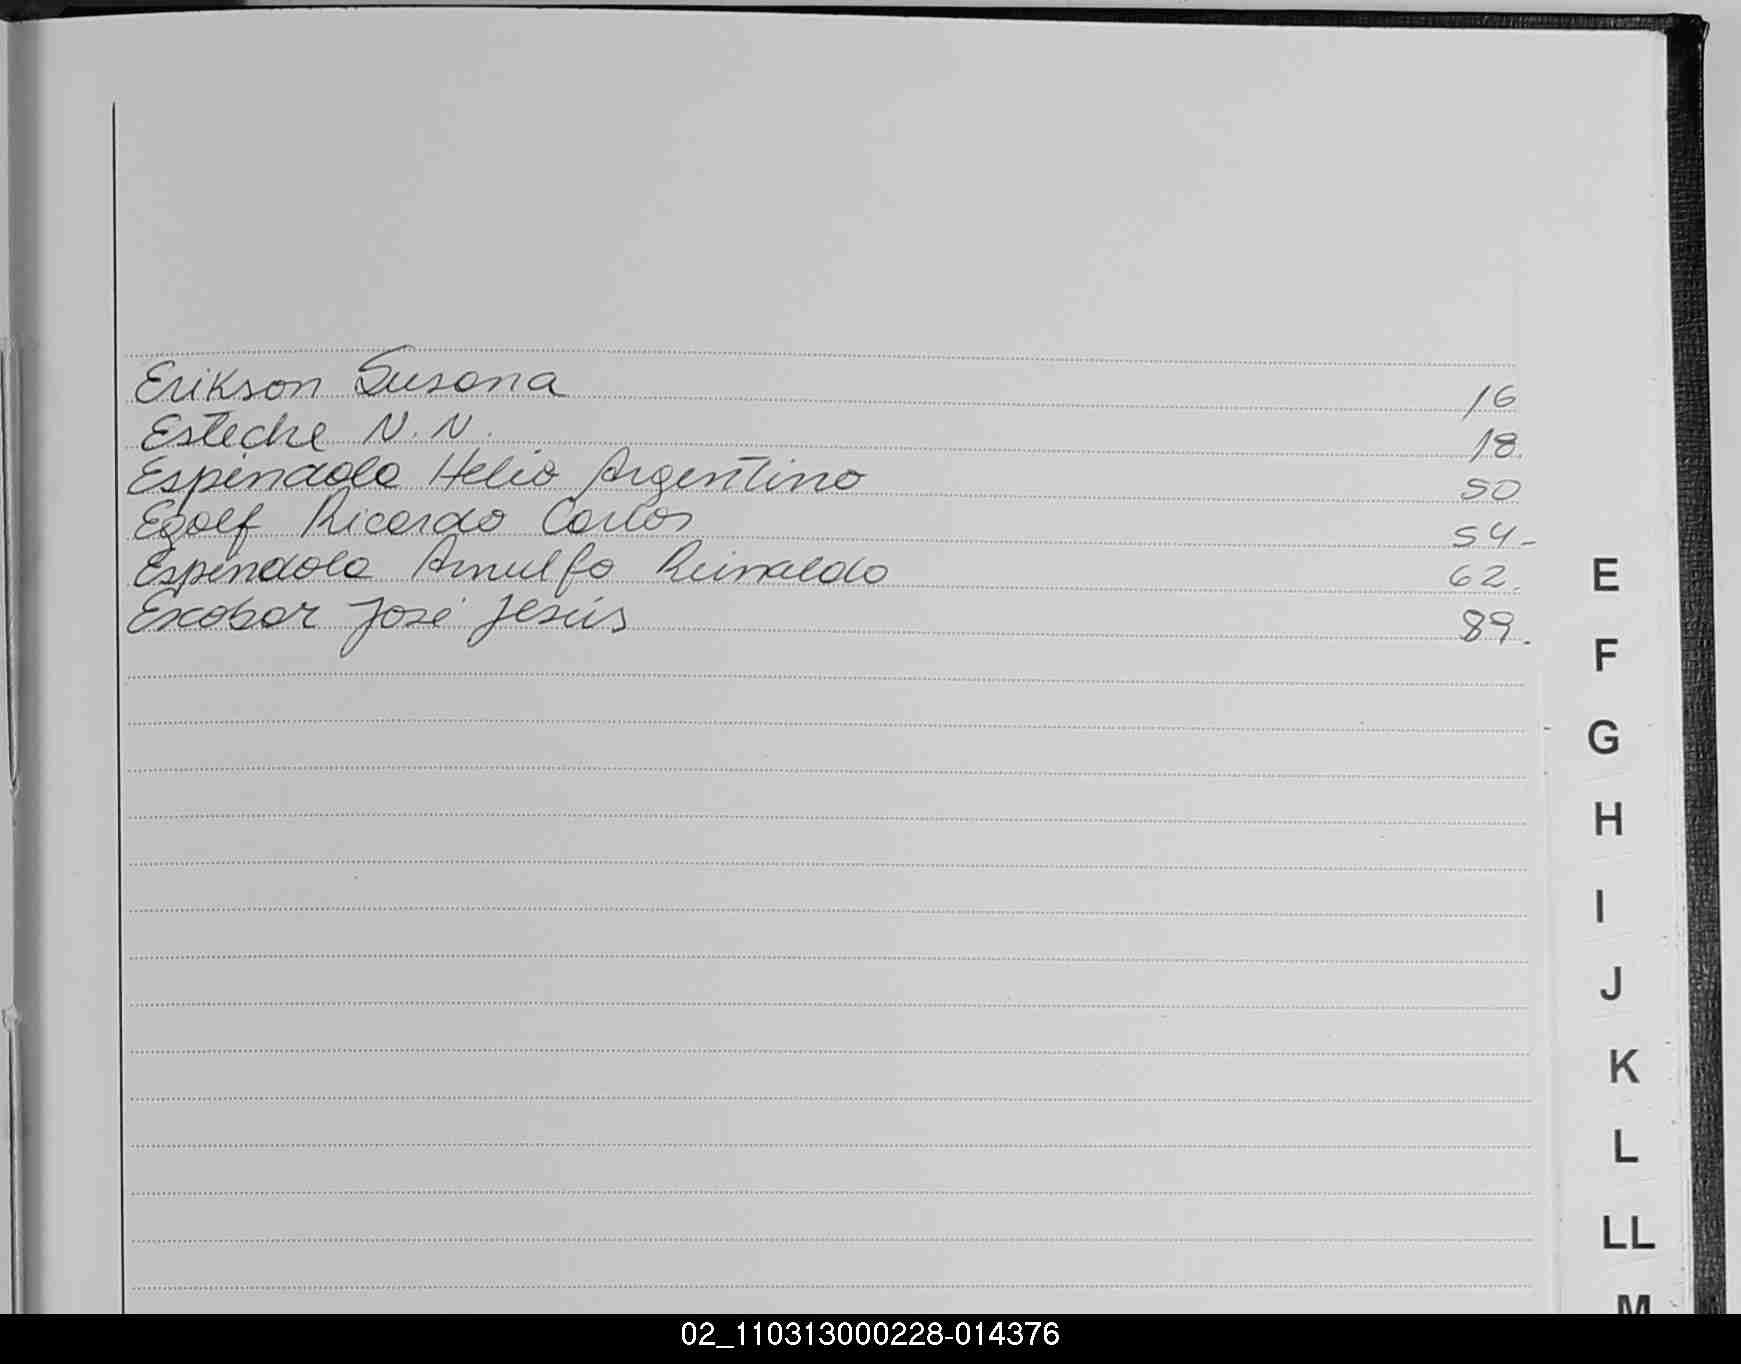 Erikson Susana 16
Esteche N.N. 18.
Espíndola Helio Argentino 50
Egolf Ricardo Carlos 54-
Espíndola Arnulfo Reinaldo 62.
Escobar José Jesús 89.
E
F
G
H
I
J
K
L
LL
M
02_110313000228-014376